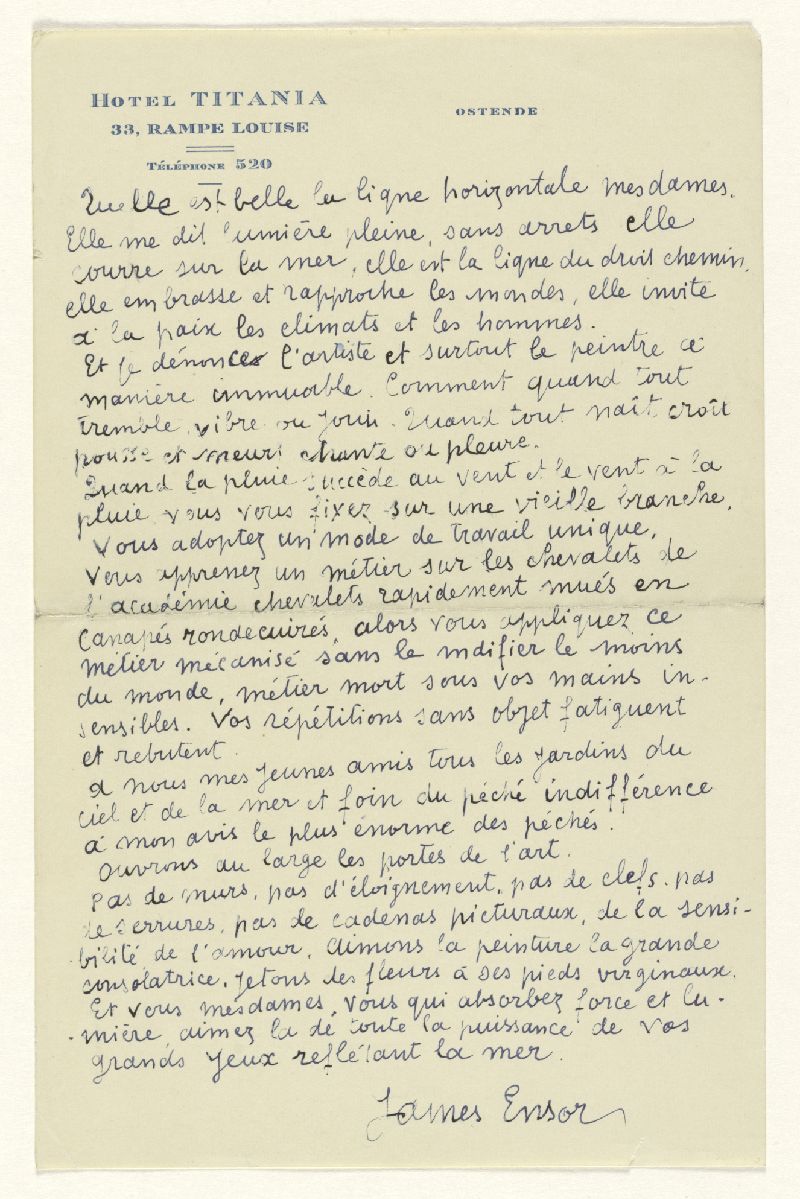 HOTEL TITANIA
33, RAMPE LOUISE
OSTENDE
TÉLÉPHONE 520
Quelle est belle la ligne horizontale mesdames.
Elle me dit lumière pleine, sans arrets elle
courre sur la mer, elle est la ligne du droit chemin,
elle embrasse et rapproche les mondes, elle invite
à la paix les climats et les hommes.
Et je dénonce l'artiste et surtout le peintre à
manière immuable. Comment quand tout
tremble, vibre ou jouit. Quand tout naît croît
pousse et meurt chante ou pleure.
Quand la pluie succède au vent et le vent à la
pluie vous vous fixez sur une vieille branche.
Vous adoptez un mode de travail unique.
Vous apprenez un métier sur les chevalets de
l'académie chevalets rapidement mués en
Canapés rondecuirés, alors vous appliquez ce
métier mécanisé sans le mdifier le moins
du monde, métier mort sous vos mains in-
sensibles. Vos répétitions sans objet fatiguent
et rebutent.
à nous mes jeunes amis tous les jardins du
ciel et de la mer et foin du péché indifférence
à mon avis le plus énorme des péchés.
Ouvrons au large les portes de l'art.
Pas de murs, pas d'éloignement, pas de clefs, pas
de serrures, pas de cadenas picturaux, de la sensi-
bilité de l'amour. Aimons la peinture la grande
consolatrice. Jetons des fleurs à ses pieds virginaux.
Et vous mesdames, vous qui absorbez force et lu-
mière, aimez la de toute la puissance de vos
grands yeux reflétant la mer.
James Ensor